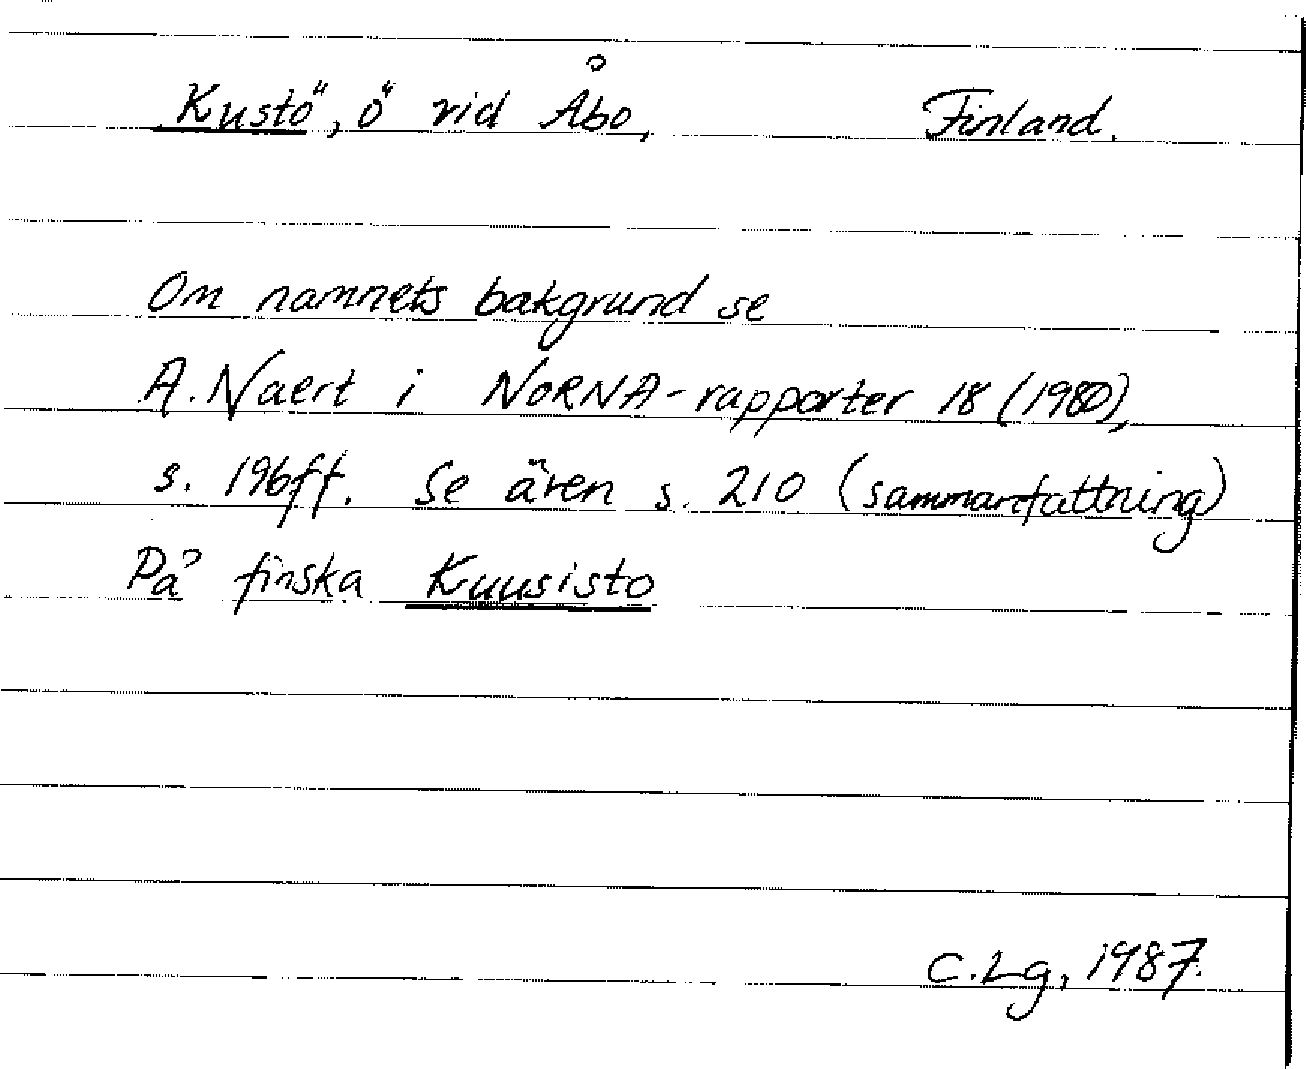 Kustö, ö vid Åbo, Finland.
Om namnets bakgrund se
A. Naert i NORNA-rapporter 18 (1980),
s. 196ff. Se även s. 210 (sammanfattning)
På finska Kuusisto
C.Lg, 1987.